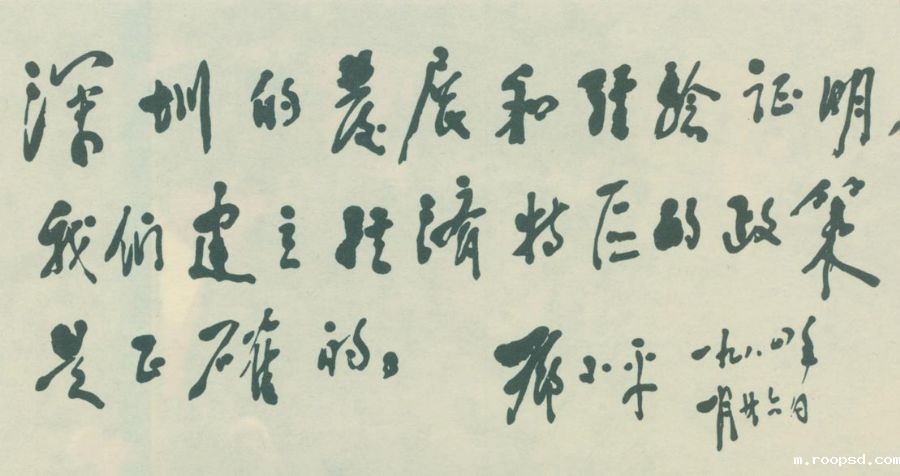 深圳的發展和经验证明，
我们建立经济特区的政策
是正確的。
鄧小平 一九八四年
一月廿六日
m.roopsd.com